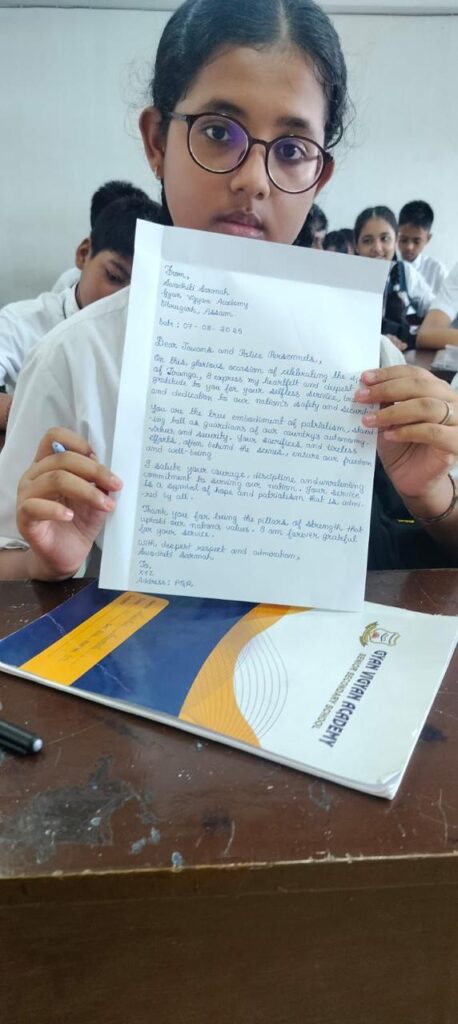 From,
Swachiti Sarmah
Gyan Vigyan Academy
Dibrugarh, Assam
Date: 07-08-2025
Dear Jawans and Police Personnels,
On this glorious occasion of celebrating the
of Tiranga, I express my heartfelt and deepest
gratitude to you for your selfless service,
and dedication to our nation's safety and security
You are the true embodiment of patriotism, stand
-ing tall as guardians of our country's autonomy,
virtues and security. Your sacrifices and tireless
efforts, often behind the scenes, ensure our freedom
and well-being
I salute your courage, discipline and unrelenting
commitment to serving our nation. Your service
is a symbol of hope and patriotism that is admi-
red by all.
Thank you for being the pillars of strength that
uphold our nation's values. I am forever grateful
for your service.
With deepest respect and admiration,
Swachiti Sarmah.
To,
XYZ
Address: PQR
GYAN VIGYAN ACADEMY
SENIOR SECONDARY SCHOOL